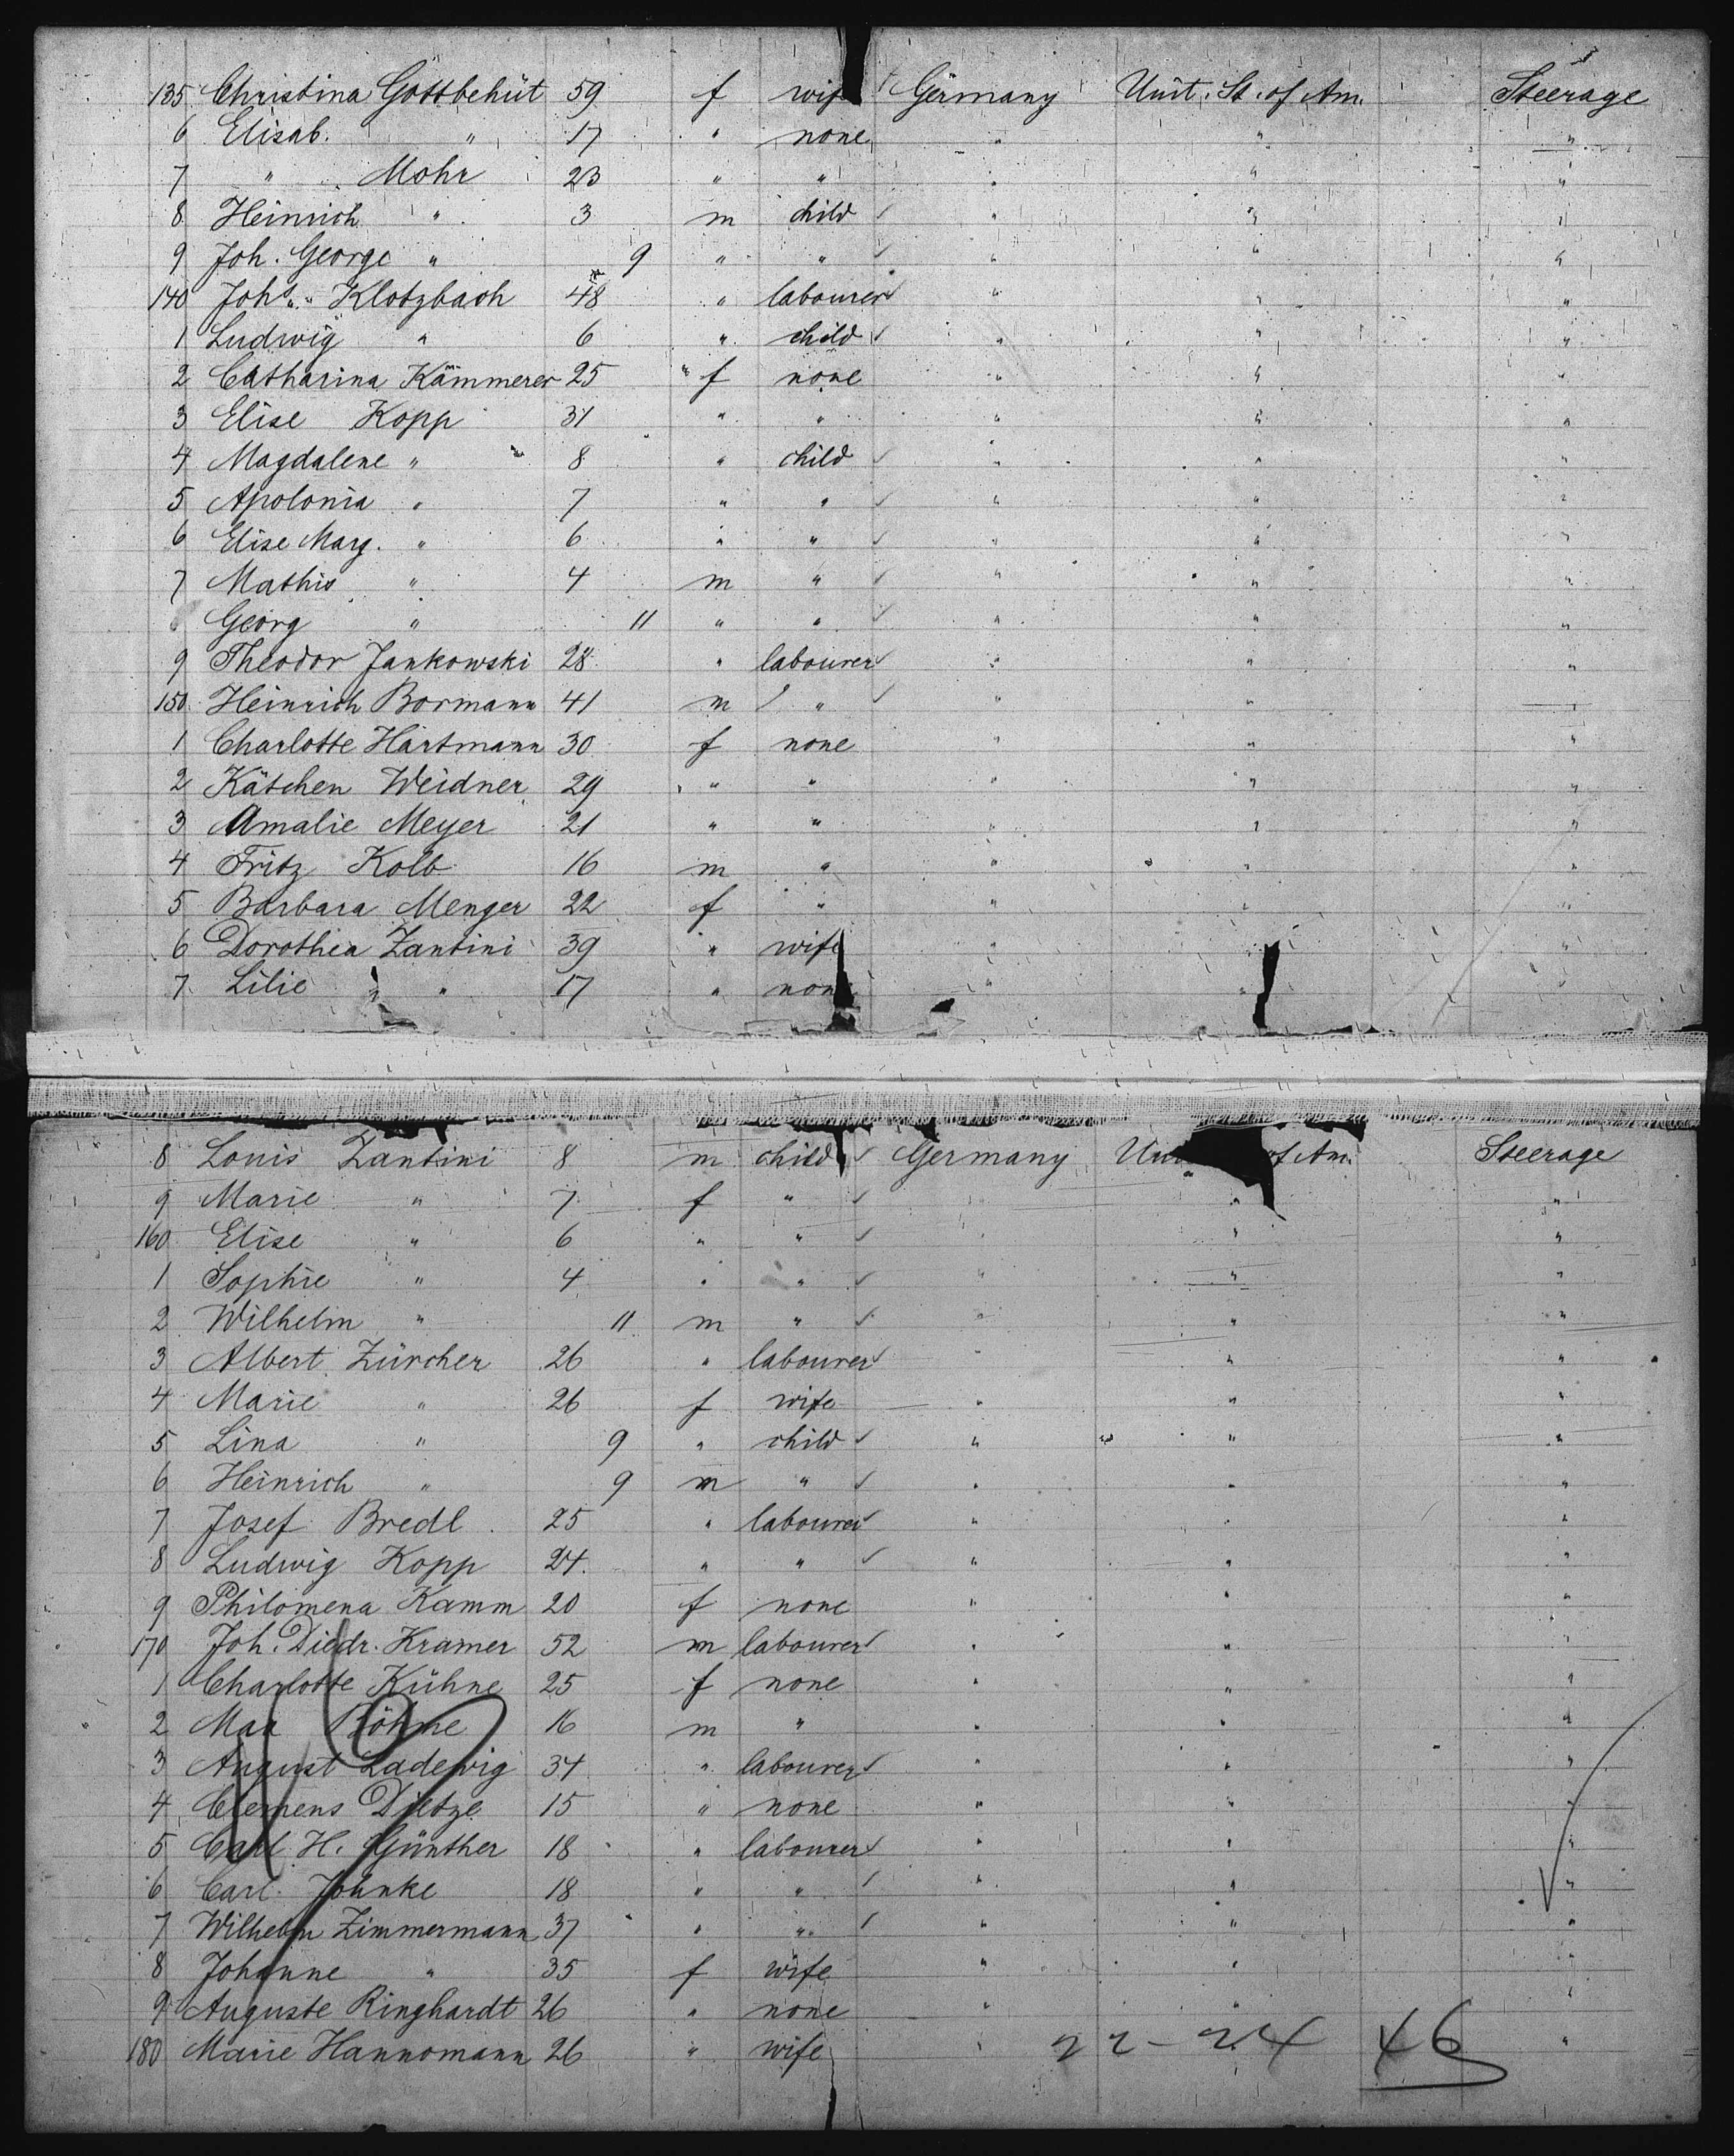 135 Christina Gottbehüt 59 f wife Germany Unit. St. of Am. Steerage
6 Elisab. " 17 " none " " "
7 " Mohr 23 " " " " "
8 Heinrich " 3 m child " " "
9 Joh. George " 9 " " " " "
140 Johs. Klotzbach 48 " labourer " " "
1 Ludwig " 6 " child " " "
2 Catharina Kämmerer 25 " f none " " "
3 Elise Kopp 31 " " " " "
4 Magdalene " 8 " child " " "
5 Apolonia " 7 " " " " "
6 Elise Marg. " 6 " " " " "
7 Mathis " 4 m " " " "
Georg " 11 " " " " "
9 Theodor Jankowski 28 " labourer " " "
150 Heinrich Bormann 41 m " " " "
1 Charlotte Hartmann 30 f none " " "
2 Kätchen Weidner 29 " " " " "
3 Amalie Meyer 21 " " " " "
4 Fritz Kolb 16 m " " " "
5 Barbara Menger 22 f " " " "
6 Dorothea Zantini 39 " wife " " "
7 Lilie " 17 " none " " "
8 Louis Zantini 8 m child Germany of Am. Steerage
9 Marie " 7 f " " " "
160 Elise " 6 " " " " "
1 Sophie " 4 " " " " "
2 Wilhelm " 11 m " " " "
3 Albert Zürcher 26 " labourer " " "
4 Marie " 26 f wife " " "
5 Lina " 9 " child " " "
6 Heinrich " 9 m " " " "
7 Josef Bredl 25 " labourer " " "
8 Ludwig Kopp 24 " " " " "
9 Philomena Kamm 20 f none " " "
170 Joh. Diedr. Kramer 52 m labourer " " "
1 Charlotte Kühne 25 f none " " "
2 Max Böhme 16 m " " " "
3 August Ladewig 34 " labourer " " "
4 Clemens Dietze 15 " none " " "
5 Carl H. Günther 18 " labourer " " "
6 Carl 18 " " " " "
7 Wilhelm Zimmermann 37 " " " " "
8 Johanne " 35 f wife " " "
9 Auguste Ringhardt 26 " none " " "
180 Marie Hannomann 26 " wife " 22-24 46 "